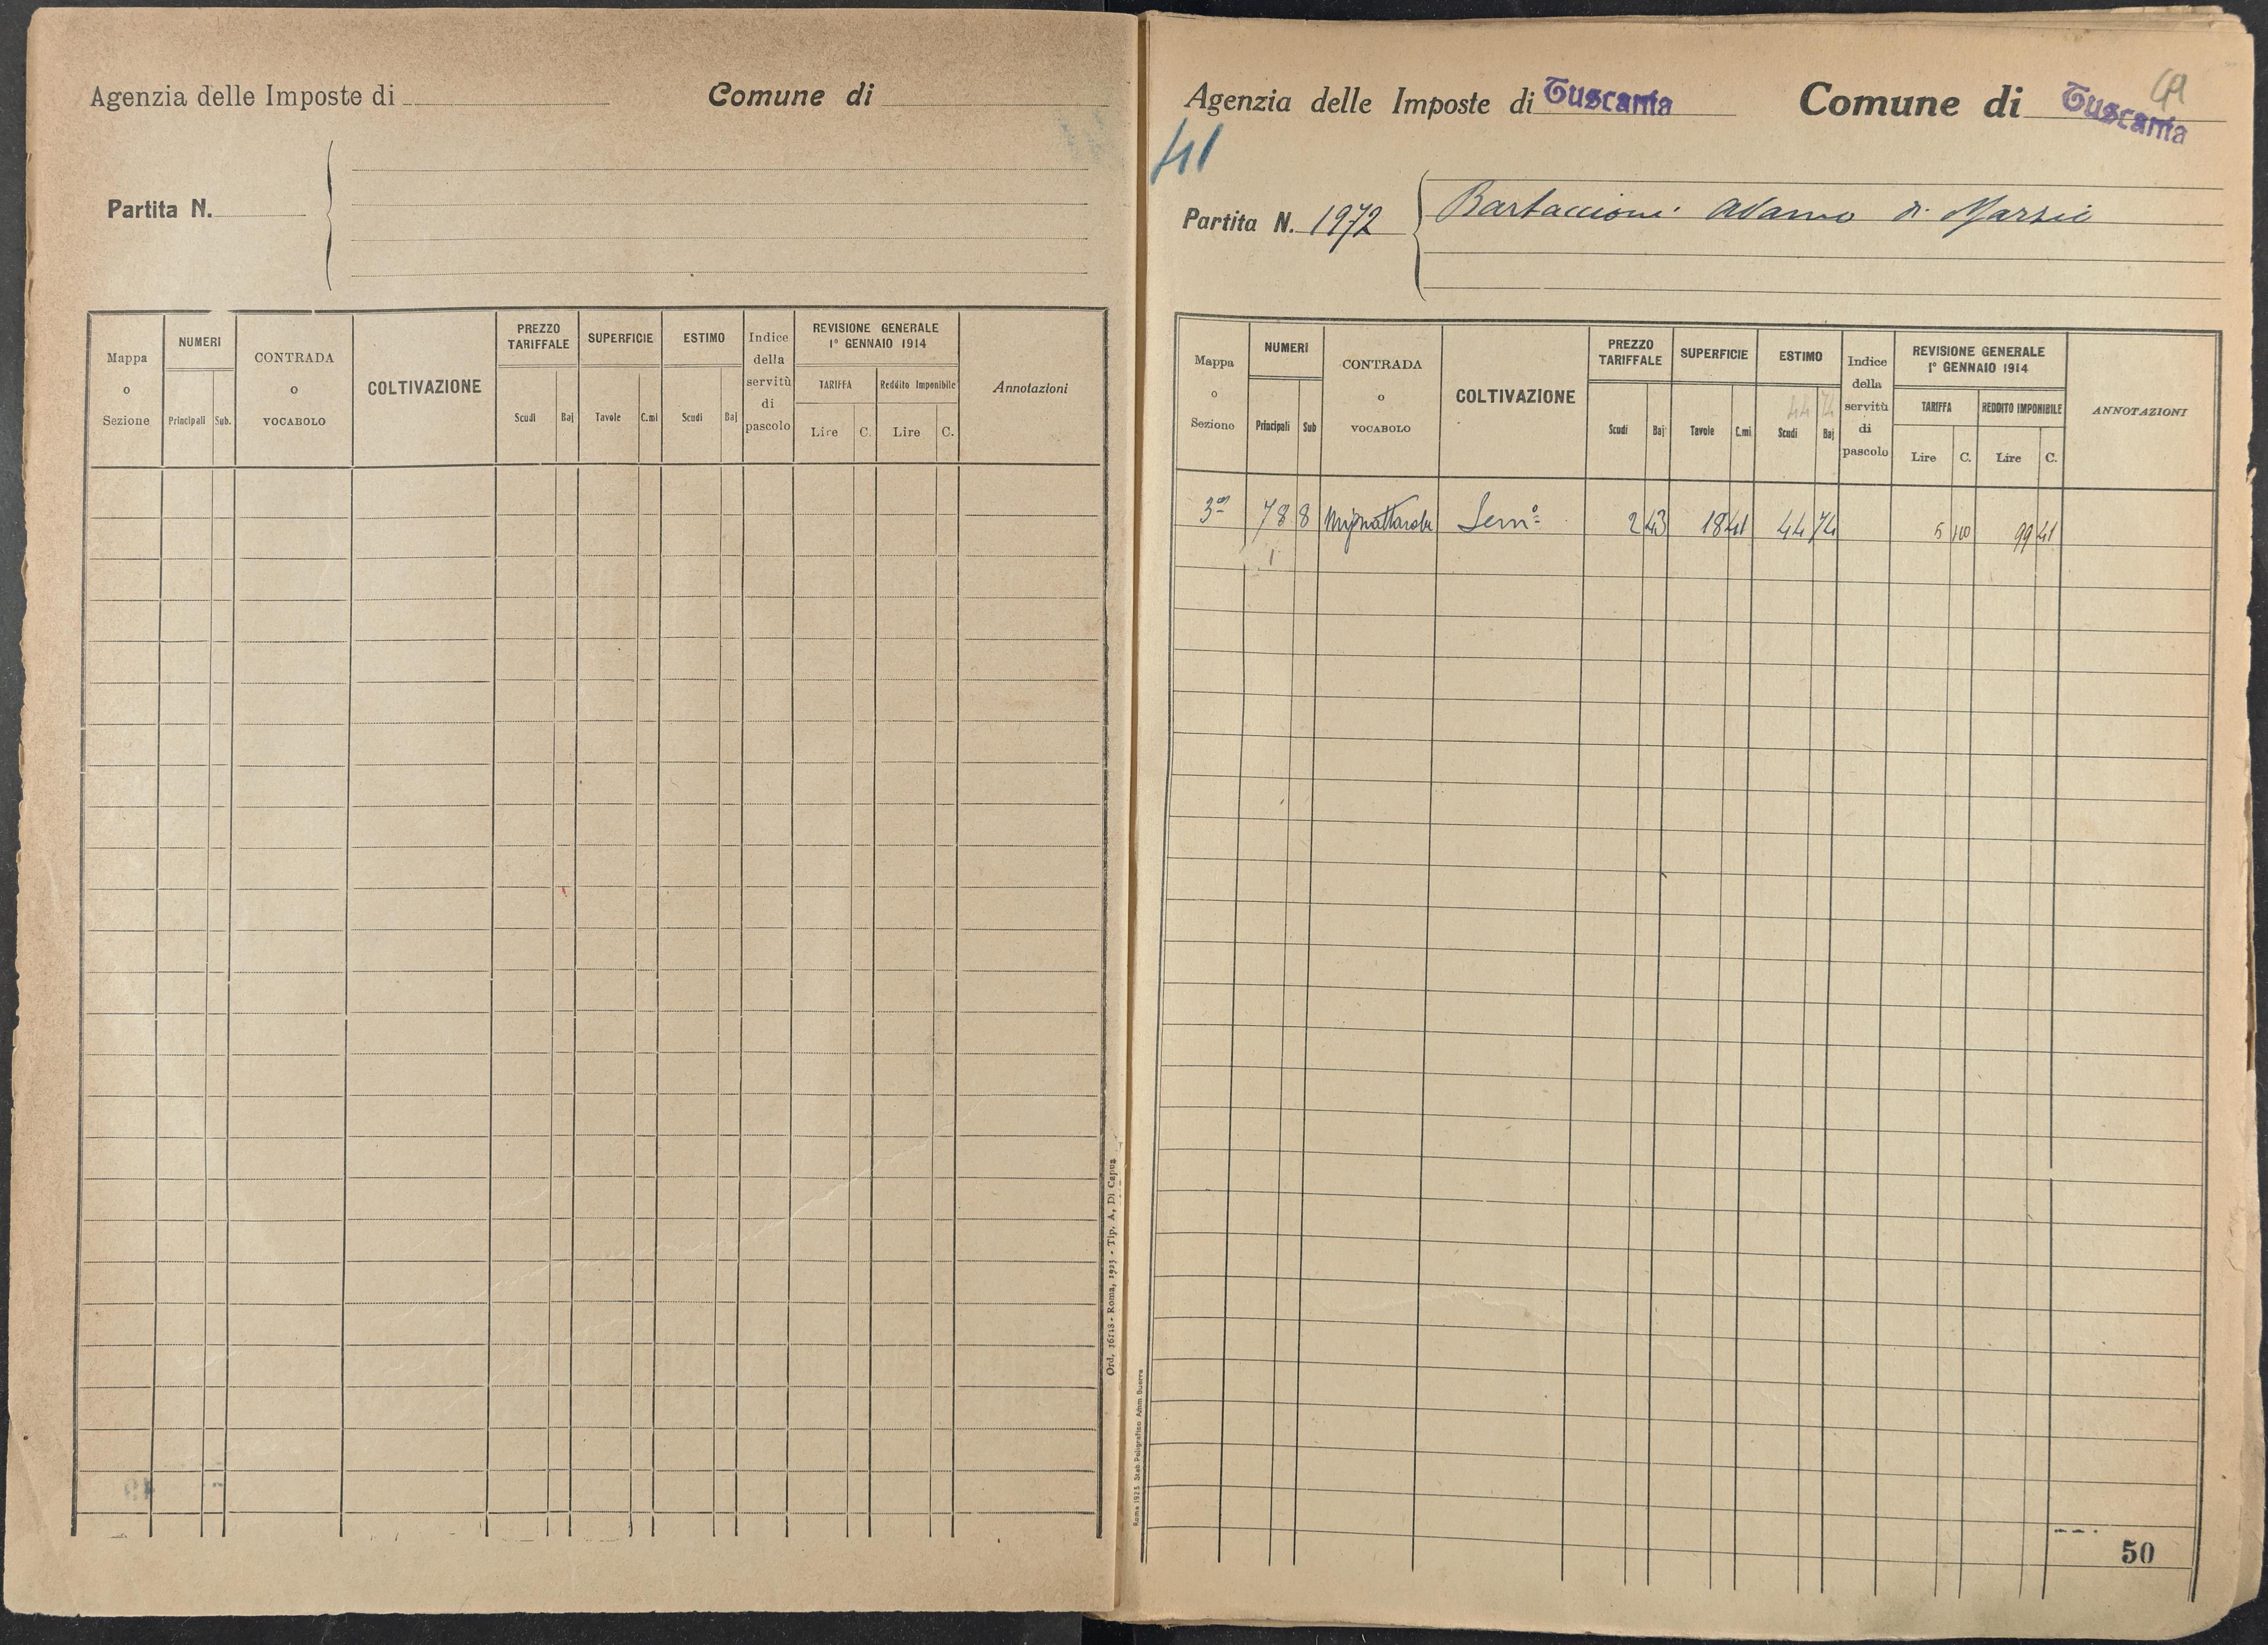 Agenzia delle Imposte di
Comune di
Partita N.
Mappa o Sezione
NUMERI
Principali Sub.
CONTRADA o VOCABOLO
COLTIVAZIONE
PREZZO TARIFFALE
Scudi Baj
SUPERFICIE
Tavole C.mi
ESTIMO
Scudi Baj
Indice della servitù di pascolo
REVISIONE GENERALE
1° GENNAIO 1914
TARIFFA
Lire C.
Reddito Imponibile
Lire C.
Annotazioni
Ord. 16118 - Roma, 1923 - Tip. A. Di Capua
Agenzia delle Imposte di Tuscania
Comune di Tuscania
41
Partita N. 1972
Bartaccioni Adamo di Marzio
Mappa o Sezione
NUMERI
Principali Sub
CONTRADA o VOCABOLO
COLTIVAZIONE
PREZZO TARIFFALE
Scudi Baj
SUPERFICIE
Tavole C.mi
ESTIMO
44 74
Scudi Baj
Indice della servitù di pascolo
REVISIONE GENERALE
1° GENNAIO 1914
TARIFFA
Lire C.
REDDITO IMPONIBILE
Lire C.
ANNOTAZIONI
3ª 78 8 Sem° 2 43 18 41 44 74 5 40 99 41
1
Roma 1925 Stab. Poligrafico Amm. Guerra
50